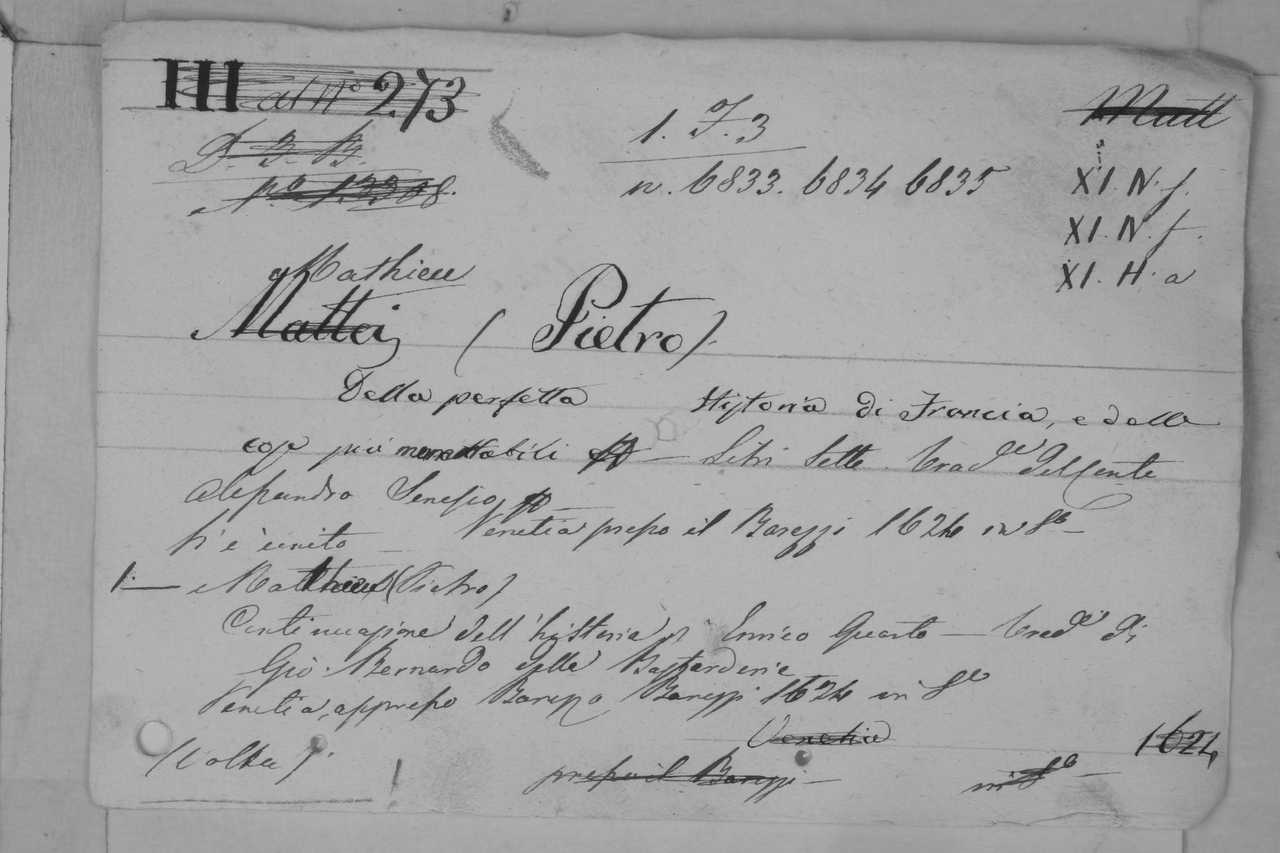 III at N° 273
D. B. B.
N° 13208.
1. F. 3
n. 6833. 6834 6835
Matt
XI. N. f.
XI. N. f.
XI. H. a
Mathieu
Mattei (Pietro)
Della perfetta Historia di Francia, e delle
cose più memorabili — Libri Sette. Trad.e del Conte
Alessandro Senesio — Venetia presso il Barezzi 1624 in 8°—
Vi è unito —
1.— Matthieu (Pietro)
Continuazione dell'historia Enrico Quarto — Trad.e di
Gio. Bernardo della Bastarderie
Venetia, appresso Barezzo Barezzi 1624 in 8°
Venetia 1624
(Volta)
presso il Barezzi — in 8° —